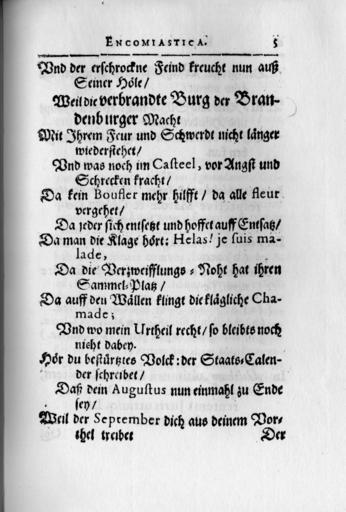 ENCOMIASTICA. 5
Vnd der erschrockne Feind kreucht nun auß
Seiner Höle/
Weil die verbrandte Burg der Bran-
denburger Macht
Mit Ihrem Feur und Schwerdt nicht länger
wiederstehet/
Vnd was noch im Casteel, vor Angst und
Schrecken kracht/
Da kein Boufler mehr hilfft/ da alle fleur
vergehet/
Da jeder sich entsetzt und hoffet auff Entsatz/
Da man die Klage hört: Helas! je suis ma-
lade,
Da die Verzweifflungs-Noht hat ihren
Sammel-Platz/
Da auff den Wällen klingt die klägliche Cha-
made;
Vnd wo mein Urtheil recht/ so bleibts noch
nicht dabey.
Hör du bestürtztes Volck: der Staats-Calen-
der schreibet/
Daß dein Augustus nun einmahl zu Ende
sey/
Weil der September dich aus deinem Vor-
thel treibet Der